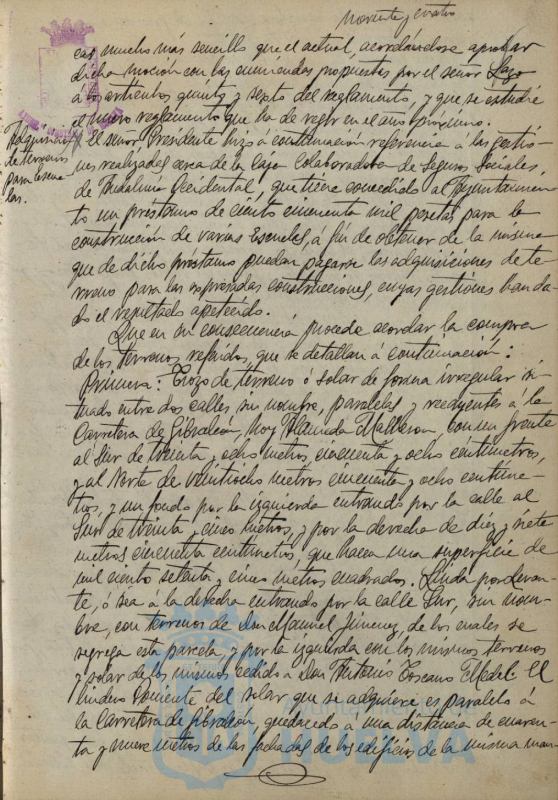 noventa y cuatro
cas mucho más sencillo que el actual, acordándose aprobar
dicha moción con las enmiendas propuestas por el señor Lago
á los artículos quinto y sexto del reglamento, y que se estudie
el nuevo reglamento que ha de regir en el año próximo.
Adquisición
de terrenos
para escue
las.
El señor Presidente hizo á continuación referencia á las gestio-
nes realizadas cerca de la Caja Colaboradora de Seguros Sociales,
de Andalucía Occidental, que tiene concedido al Ayuntamien-
to un préstamo de ciento cincuenta mil pesetas para la
construcción de varias Escuelas, á fin de obtener de la misma
que de dicho préstamo puedan pagarse las adquisiciones de te-
rreno para las expresadas construcciones, cuyas gestiones han da-
do el resultado apetecido.
Que en su consecuencia procede acordar la compra
de los terrenos referidos, que se detallan á continuación:
Primera: Trozo de terreno ó solar de forma irregular si-
tuado entre dos calles sin nombre, paralelas y recayentes á la
Carretera de Gibraleón, hoy Alameda, con un frente
al Sur de treinta y ocho metros cincuenta y ocho centímetros,
y al Norte de veintiocho metros cincuenta y ocho centíme-
tros, y un fondo por la izquierda entrando por la calle al
Sur de treinta y cinco metros, y por la derecha de diez y siete
metros cincuenta centímetros, que hacen una superficie de
mil ciento setenta y cinco metros cuadrados. Linda por delan-
te, ó sea á la derecha entrando por la calle Sur, sin nom-
bre, con terrenos de Don Manuel Jimenez, de los cuales se
segrega esta parcela, y por la izquierda con los mismos terrenos
y solar de los mismos cedido á Don Antonio Toscano Medel. El
lindero Poniente del solar que se adquiere es paralelo á
la Carretera de Gibraleón, quedando á una distancia de cuaren-
ta y nueve metros de las fachadas de los edificios de la misma man-
HUELVA